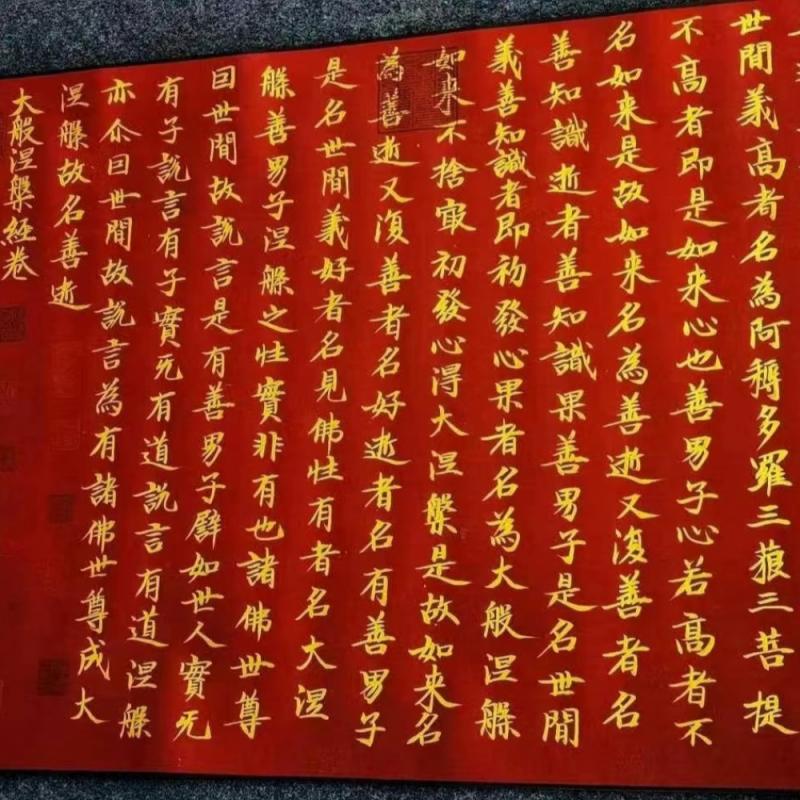 世間義高者名為阿耨多羅三藐三菩提
不高者即是如来心也善男子心若高者不
名如来是故如来名為善逝又復善者名
善知識逝者善知識果善男子是名世間
義善知識者即初發心果者名為大般涅槃
如来不捨㝡初發心得大涅槃是故如来名
為善逝又復善者名好逝者名有善男子
是名世間義好者名見佛性有者名大涅
槃善男子涅槃之性實非有也諸佛世尊
因世間故說言是有善男子譬如世人實无
有子說言有子實无有道說言有道涅槃
亦尒因世間故說言為有諸佛世尊成大
涅槃故名善逝
大般涅槃經卷